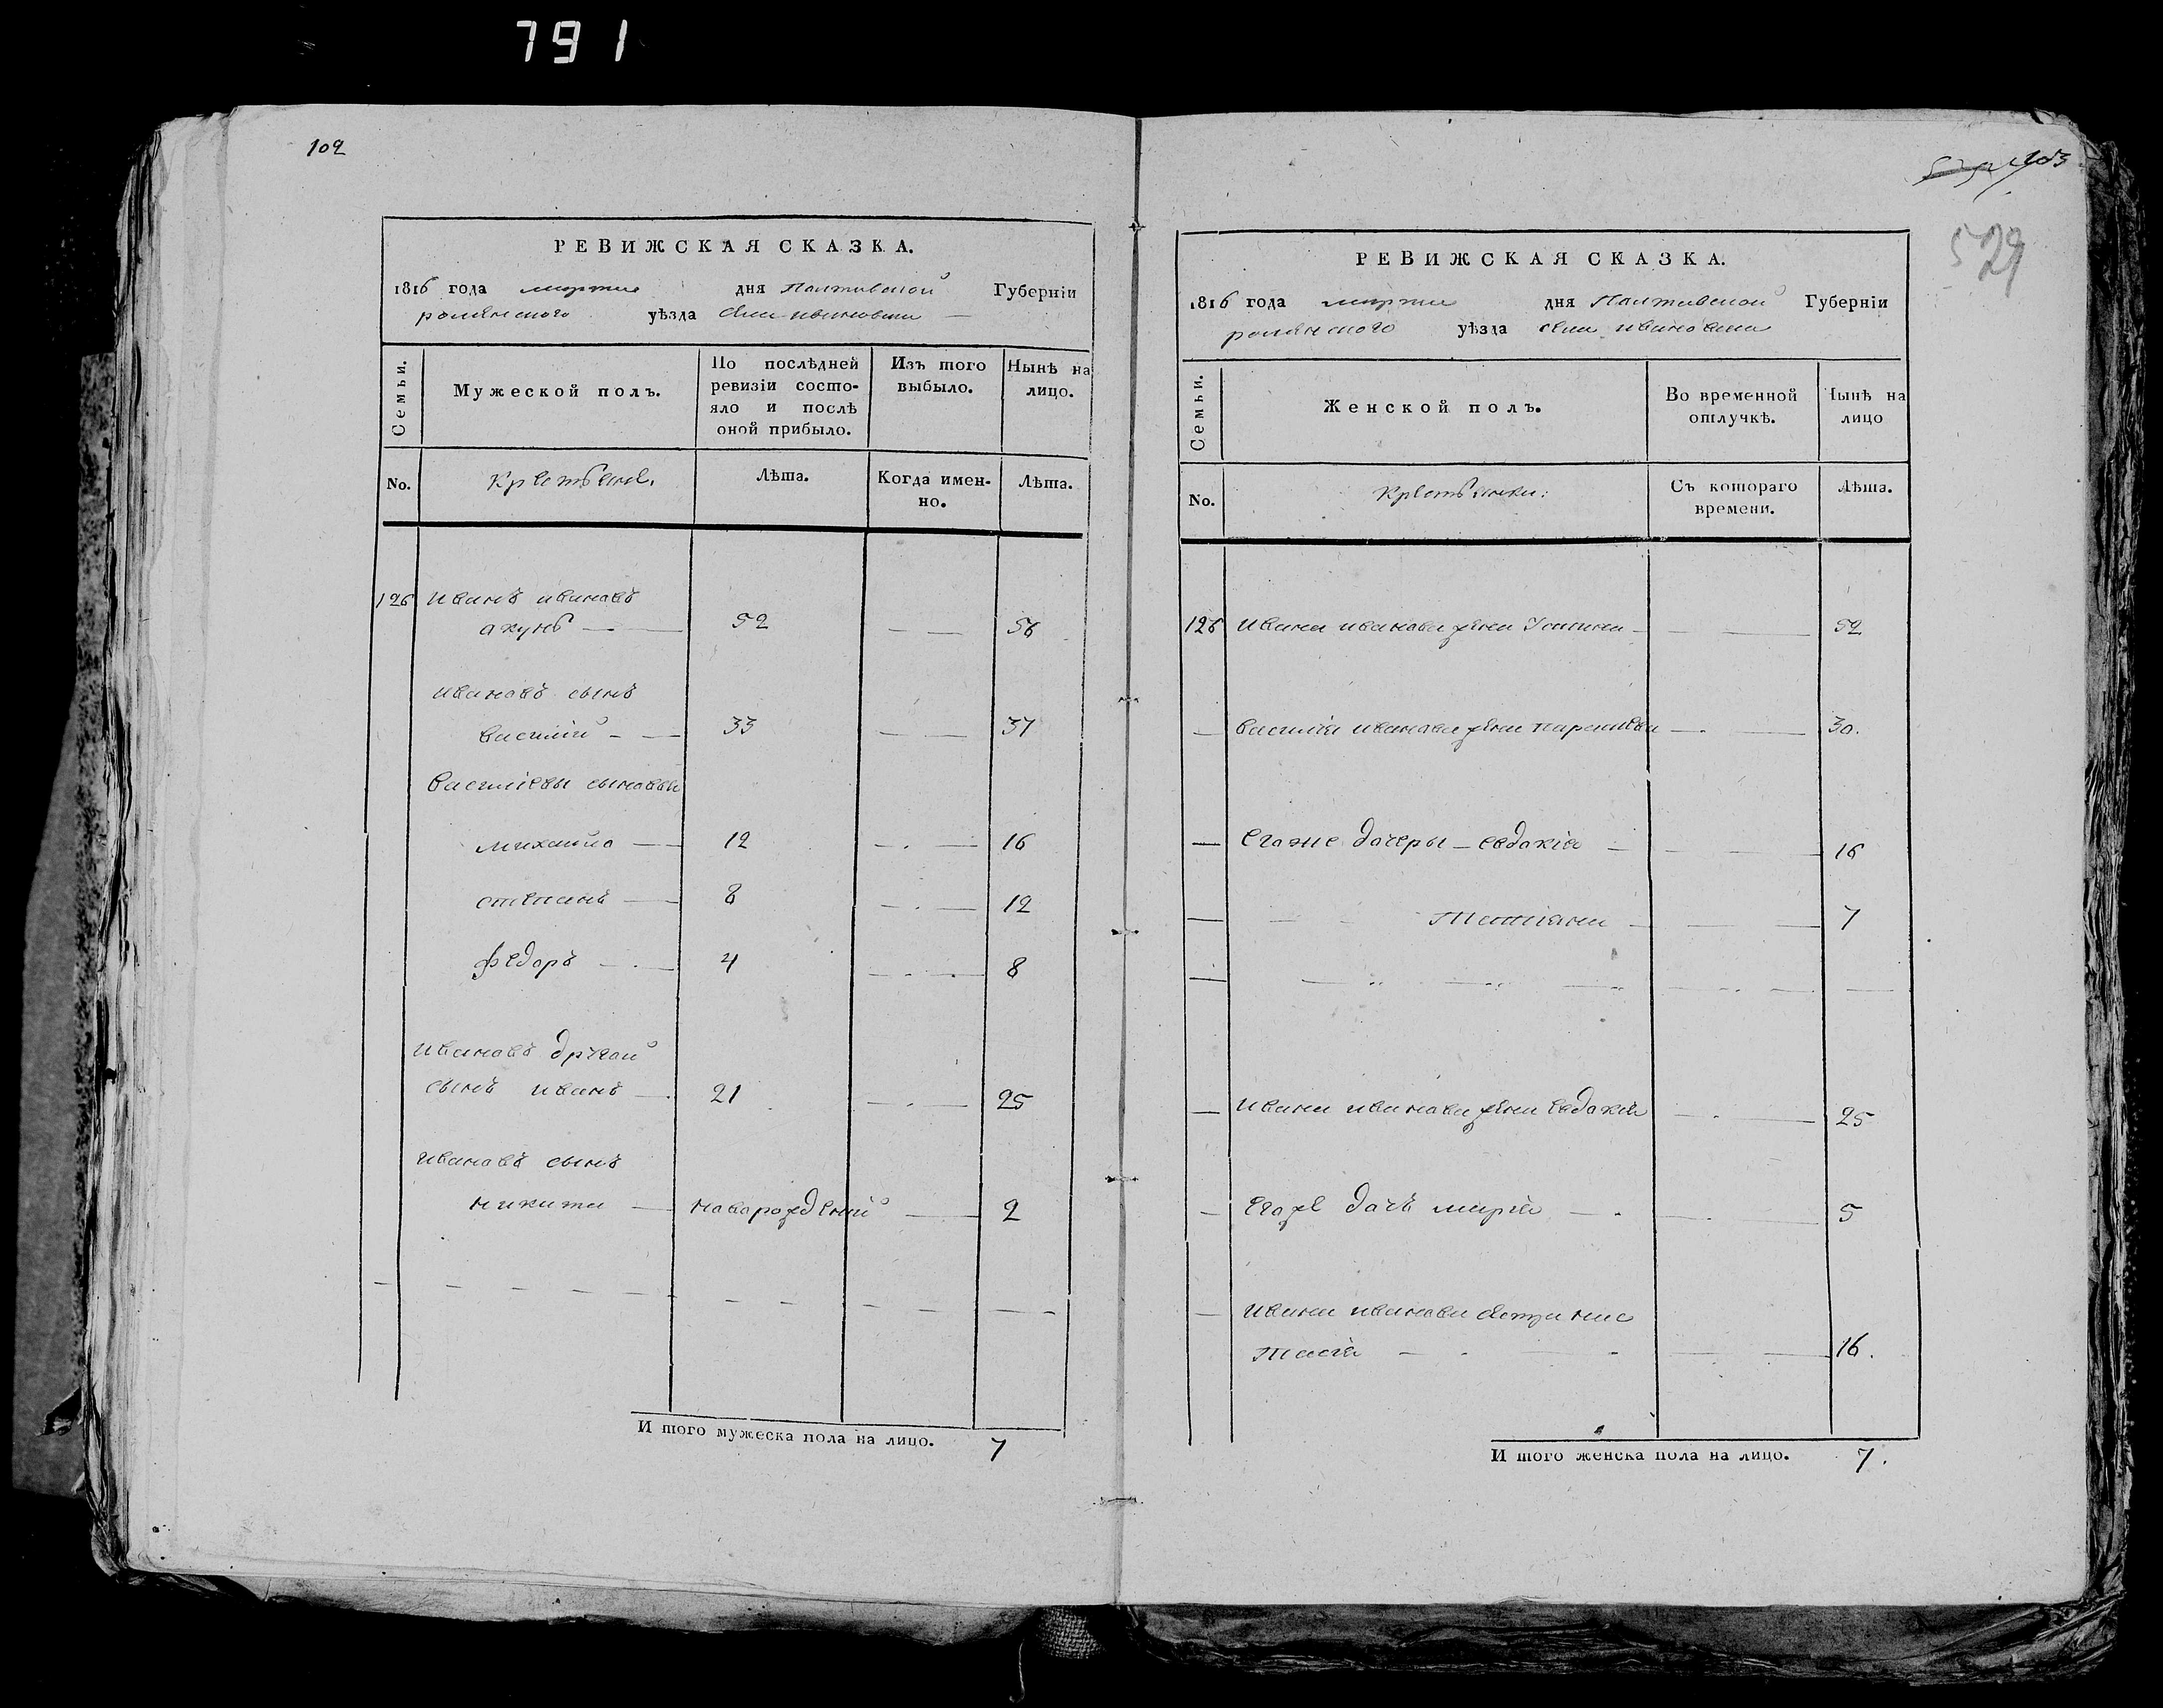 791
102
РЕВИЖСКАЯ СКАЗКА.
1816 года марта дня Полтавской Губерніи
роменского уѣзда села ивановки
Семьи.
Мужеской полъ.
По послѣдней ревизіи состояло и послѣ оной прибыло.
Изъ того выбыло.
Нынѣ на лицо.
No.
Крестьяне.
Лѣта.
Когда именно.
Лѣта.
126 Иванъ ивановъ
акунъ 52 56
ивановъ сынъ
василій 33 37
василіевы сыновьи
михайло 12 16
степанъ 8 12
федоръ 4 8
ивановъ другой
сынъ иванъ 21 25
ивановъ сынъ
никита наворожденій 2
И того мужеска пола на лицо. 7
103
529
РЕВИЖСКАЯ СКАЗКА.
1816 года марта дня Полтавской Губерніи
роменского уѣзда села ивановки
Семьи.
Женской полъ.
Во временной отлучкѣ.
Нынѣ на лицо
No.
Крестьянки:
Съ котораго времени.
Лѣта.
126 Ивана иванова жена Устина 52
василія иванова жена парасковья 30.
Егоже дочеры евдокія 16
Татіана 7
Ивана иванова жена евдокія 25
Егоже дочь марія 5
Ивана иванова
16.
И того женска пола на лицо. 7.